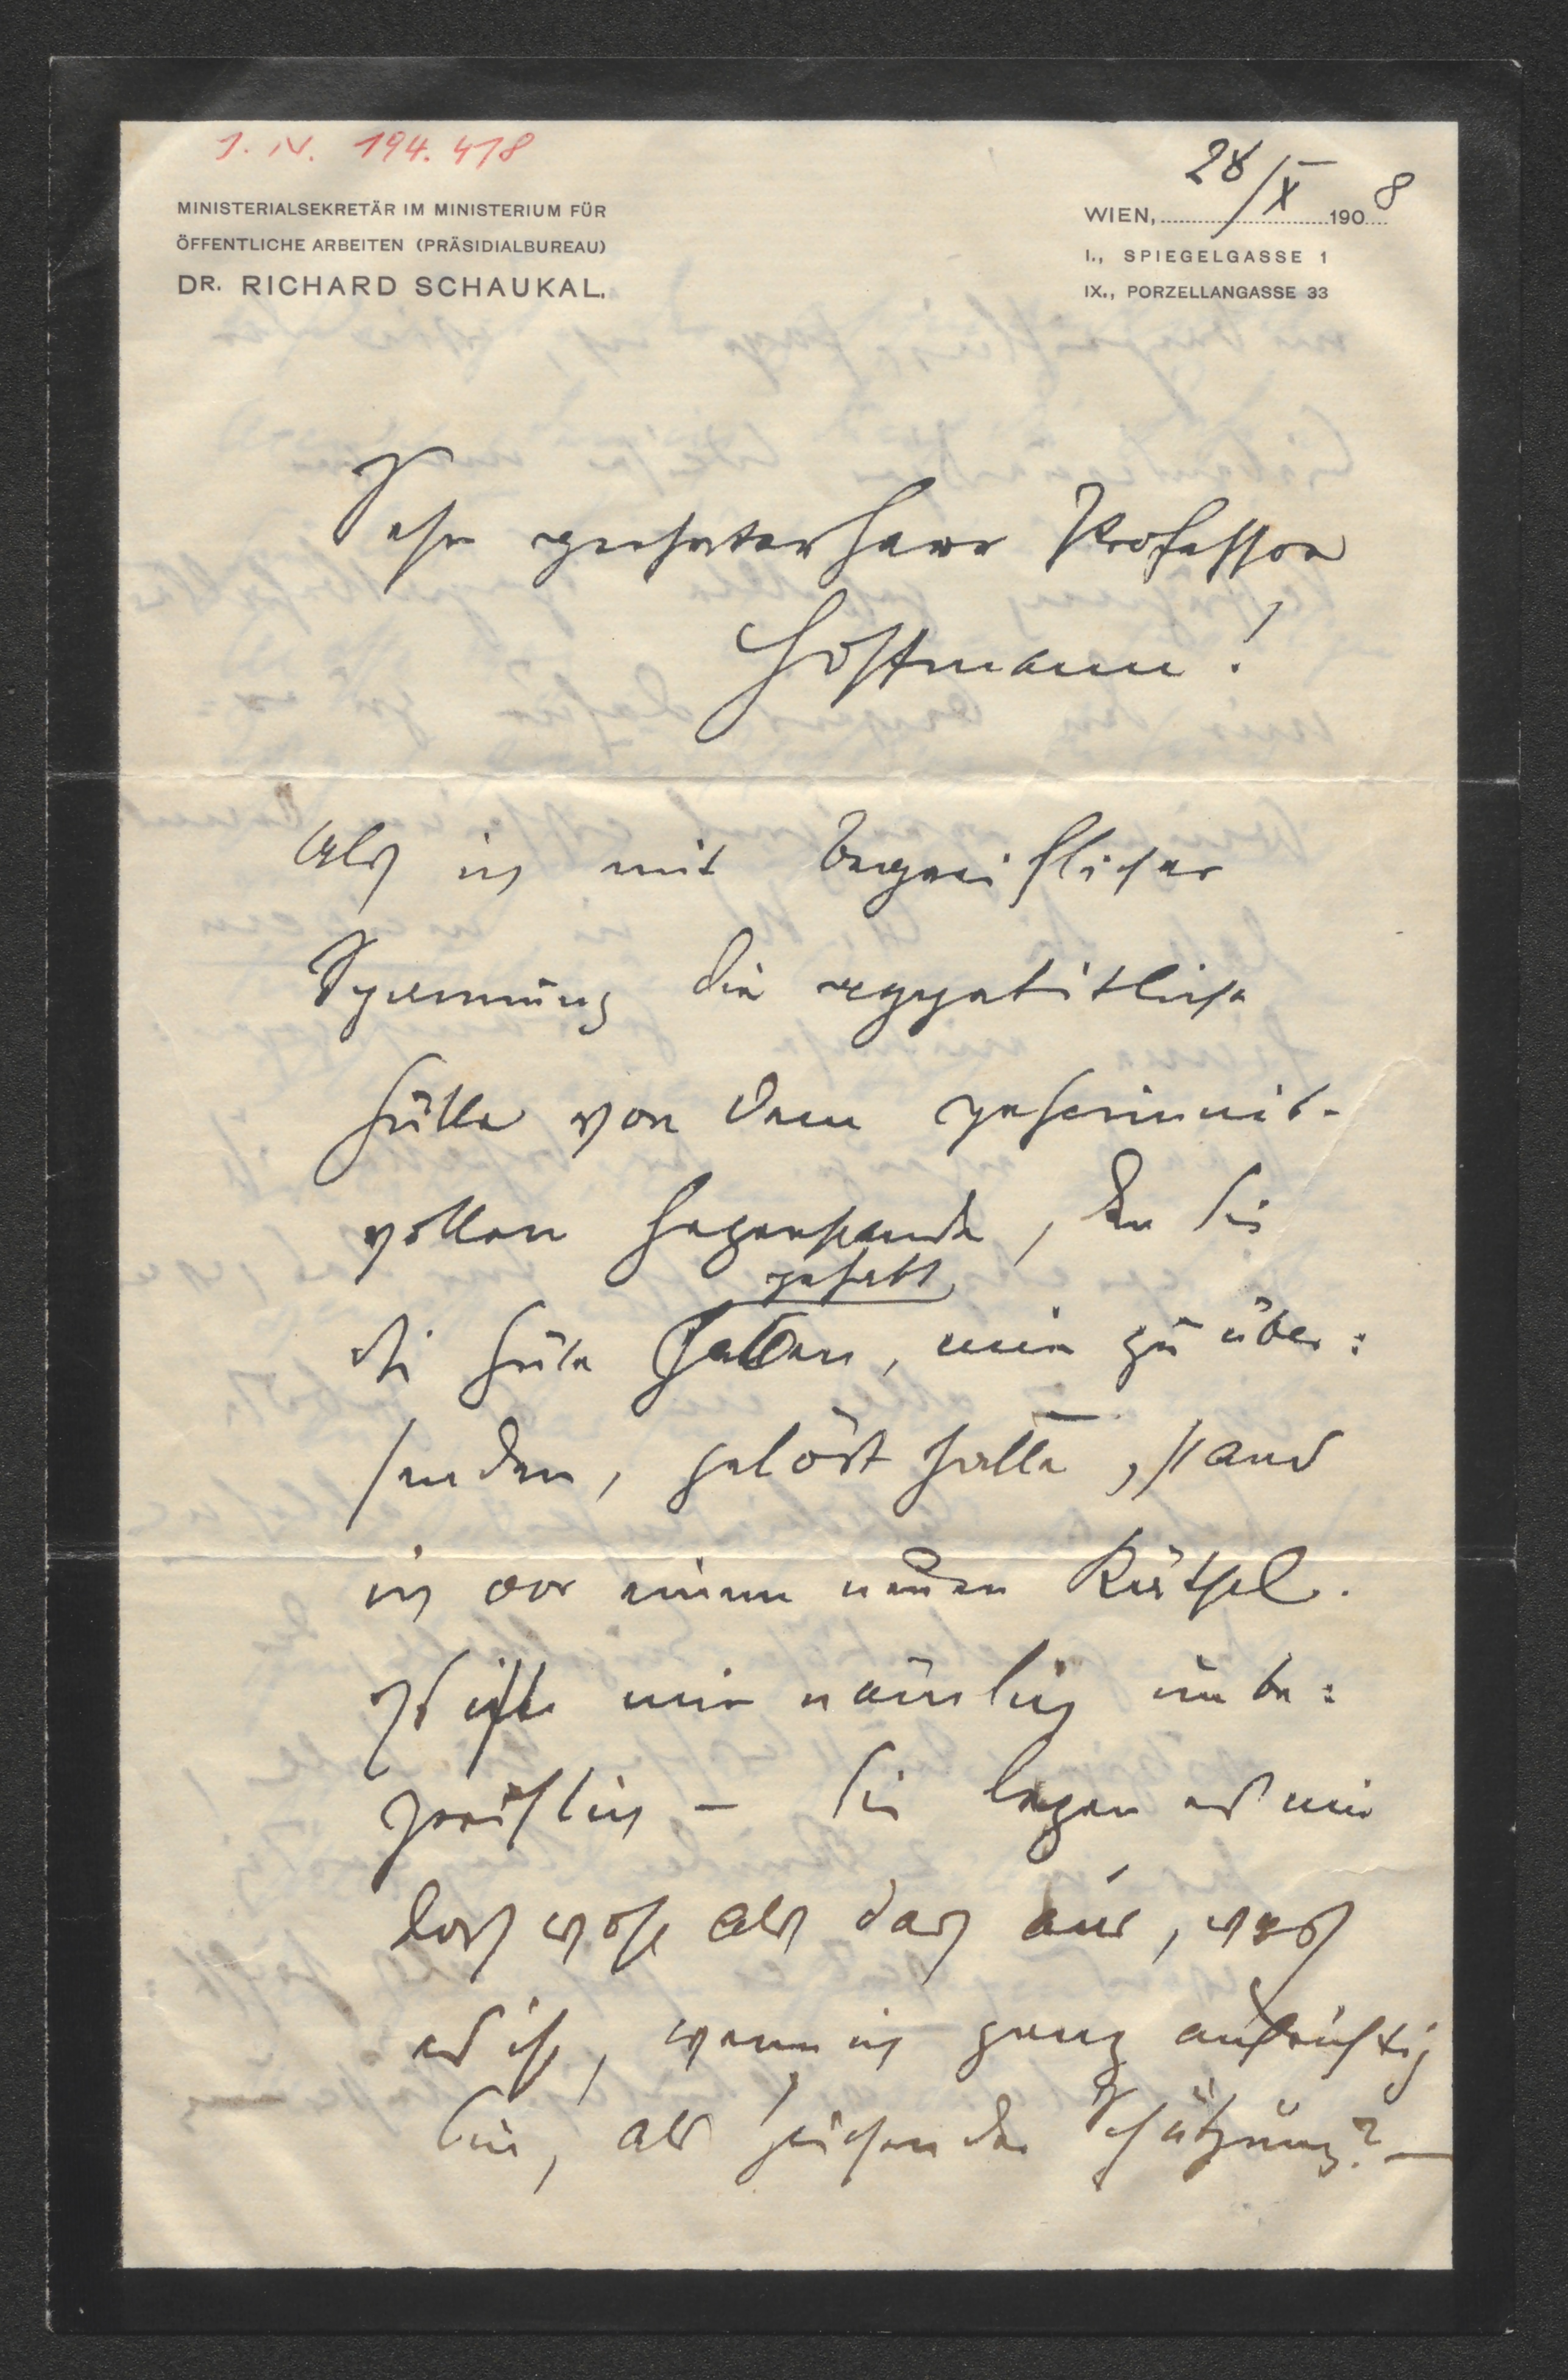 J. N. 194.418
MINISTERIALSEKRETÄR IM MINISTERIUM FÜR
ÖFFENTLICHE ARBEITEN (PRÄSIDIALBUREAU)
DR. RICHARD SCHAUKAL.
WIEN, 28/X 1908
I., SPIEGELGASSE 1
IX., PORZELLANGASSE 33
Sehr geehrter Herr Professor
Hoffmann!
Als ich mit begreiflicher
Spannung die appetitliche
Hülle von dem geheimnis-
vollen Gegenstande, den Sie
gehabt
die Güte haben, mir zu über:
senden, gelöst hatte, stand
ich vor einem neuen Rätsel.
Es ist mir nämlich unbe:
greiflich – Sie legen es mir
doch nicht als das aus, was
es ist, wenn ich ganz aufrichtig
bin, als Zeichen der Schätzung? –